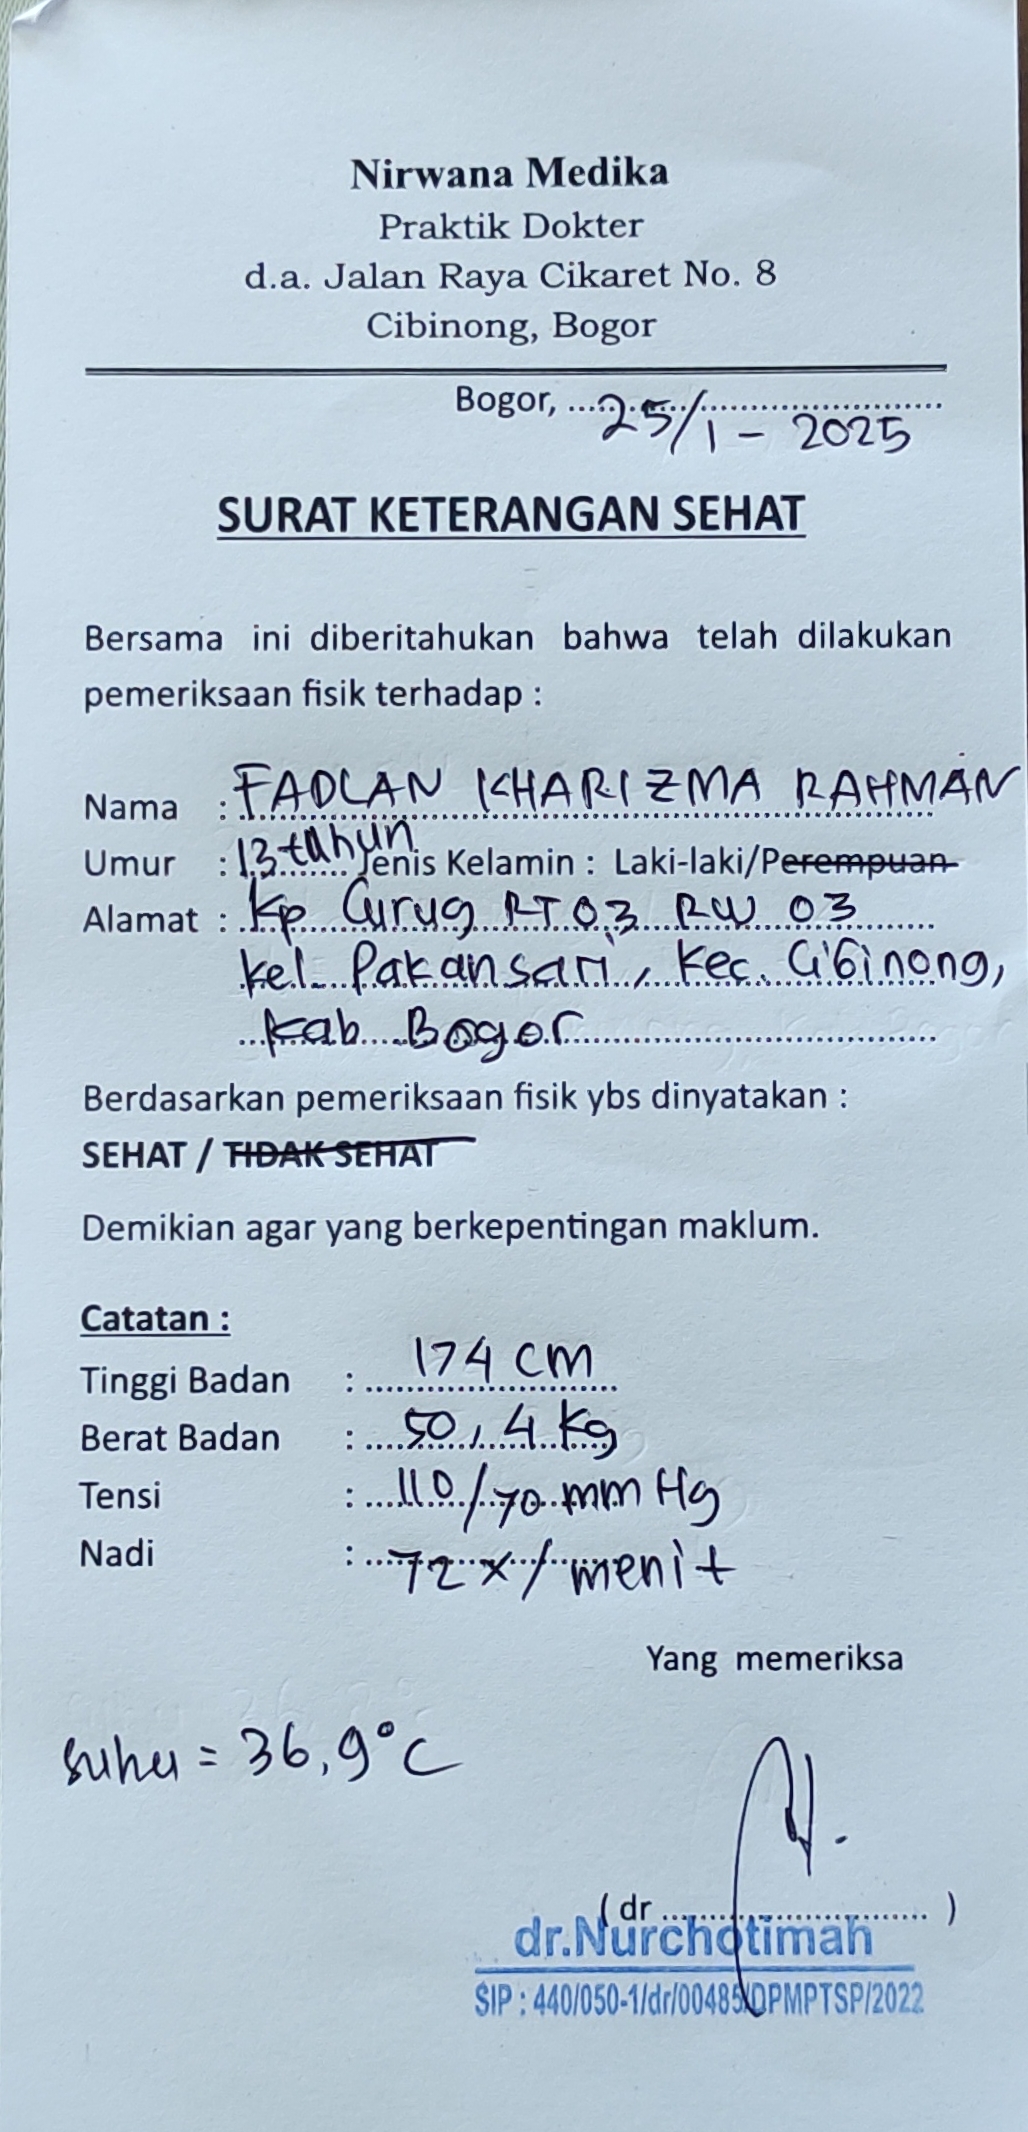 Nirwana Medika
Praktik Dokter
d.a. Jalan Raya Cikaret No. 8
Cibinong, Bogor
Bogor, 25/1 - 2025
SURAT KETERANGAN SEHAT
Bersama ini diberitahukan bahwa telah dilakukan
pemeriksaan fisik terhadap :
Nama : FADLAN KHARIZMA RAHMAN
Umur : 13 tahun Jenis Kelamin : Laki-laki/Perempuan
Alamat : Kp Curug RT 03 RW 03
Kel. Pakansari, Kec. Cibinong,
Kab. Bogor
Berdasarkan pemeriksaan fisik ybs dinyatakan :
SEHAT / TIDAK SEHAT
Demikian agar yang berkepentingan maklum.
Catatan :
Tinggi Badan : 174 cm
Berat Badan : 50,4 Kg
Tensi : 110/70 mmHg
Nadi : 72 x/menit
Yang memeriksa
suhu = 36,9°C
( dr .............................. )
dr.Nurchotimah
SIP : 440/050-1/dr/00485/DPMPTSP/2022